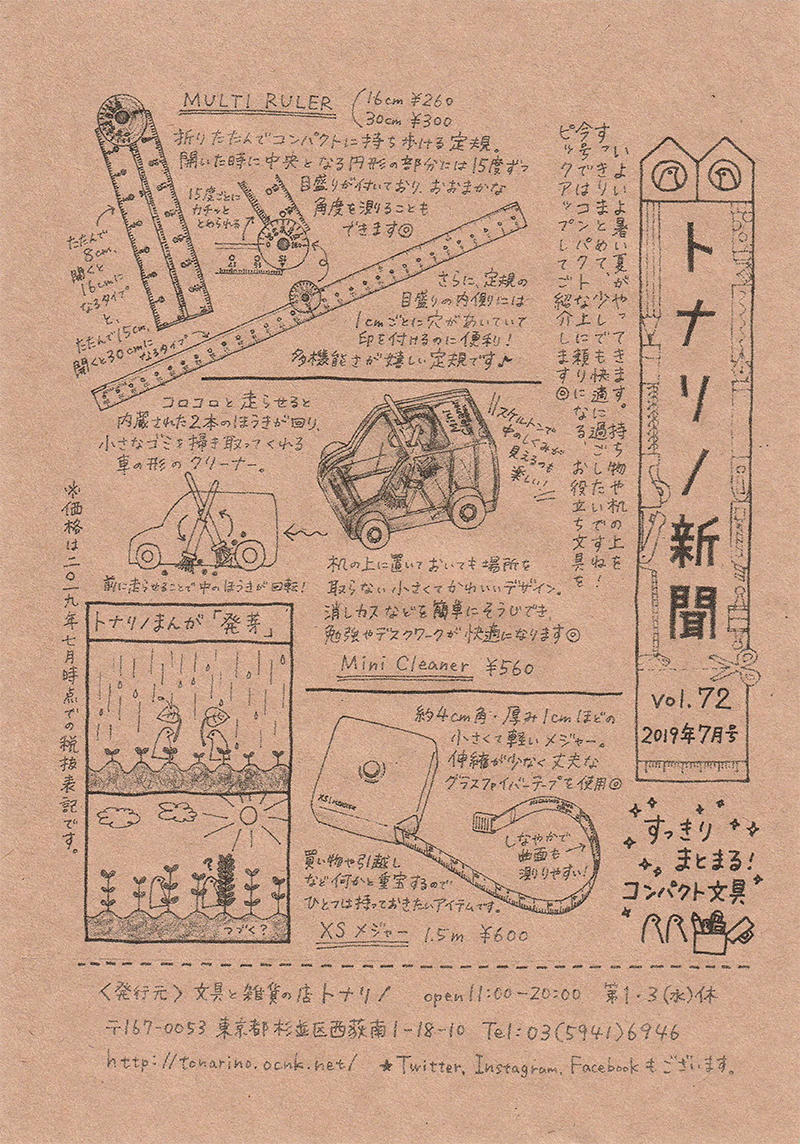 トナリノ新聞
vol.72
2019年7月号
いよいよ暑い夏がやってきます。持ち物や机の上を
すっきりまとめて、少しでも快適に過ごしたいですね！
今号ではコンパクトな上に頼りになる、お役立ち文具を
ピックアップしてご紹介します◎
すっきり
まとまる！
コンパクト文具
MULTI RULER
16cm ¥260
30cm ¥300
折りたたんでコンパクトに持ち歩ける定規。
開いた時に中央となる円形の部分には15度ずつ
目盛りが付いており、おおまかな
角度を測ることも
できます◎
15度ごとに
カチッと
とめられる
たたんで
8cm、
開くと
16cmに
なるタイプ
と、
たたんで15cm、
開くと30cmに
なるタイプ
さらに、定規の
目盛りの内側には
1cmごとに穴があいていて
印を付けるのに便利！
多機能さが嬉しい定規です♪
コロコロと走らせると
内蔵された2本のほうきが回り、
小さなゴミを掃き取ってくれる
車の形のクリーナー。
Mini
Cleaner
スケルトンで
中のしくみが
見えるのも
楽しい！
前に走らせることで中のほうきが回転！
机の上に置いておいても場所を
取らない小さくてかわいいデザイン。
消しカスなどを簡単にそうじでき、
勉強やデスクワークが快適になります◎
Mini Cleaner ¥560
トナリノまんが「発芽」
?
つづく？
約4cm角・厚み1cmほどの
小さくて軽いメジャー。
伸縮が少なく丈夫な
グラスファイバーテープを使用◎
しなやかで
曲面も
測りやすい！
買い物や引越し
など何かと重宝するので
ひとつは持っておきたいアイテムです。
XS メジャー 1.5m ¥600
※価格は二〇一九年七月時点での税抜表記です。
〈発行元〉文具と雑貨の店トナリノ open 11:00-20:00 第1・3(水)休
〒167-0053 東京都杉並区西荻南1-18-10 Tel:03(5941)6946
http://tonarino.ocnk.net/ ★Twitter, Instagram, Facebookもございます。